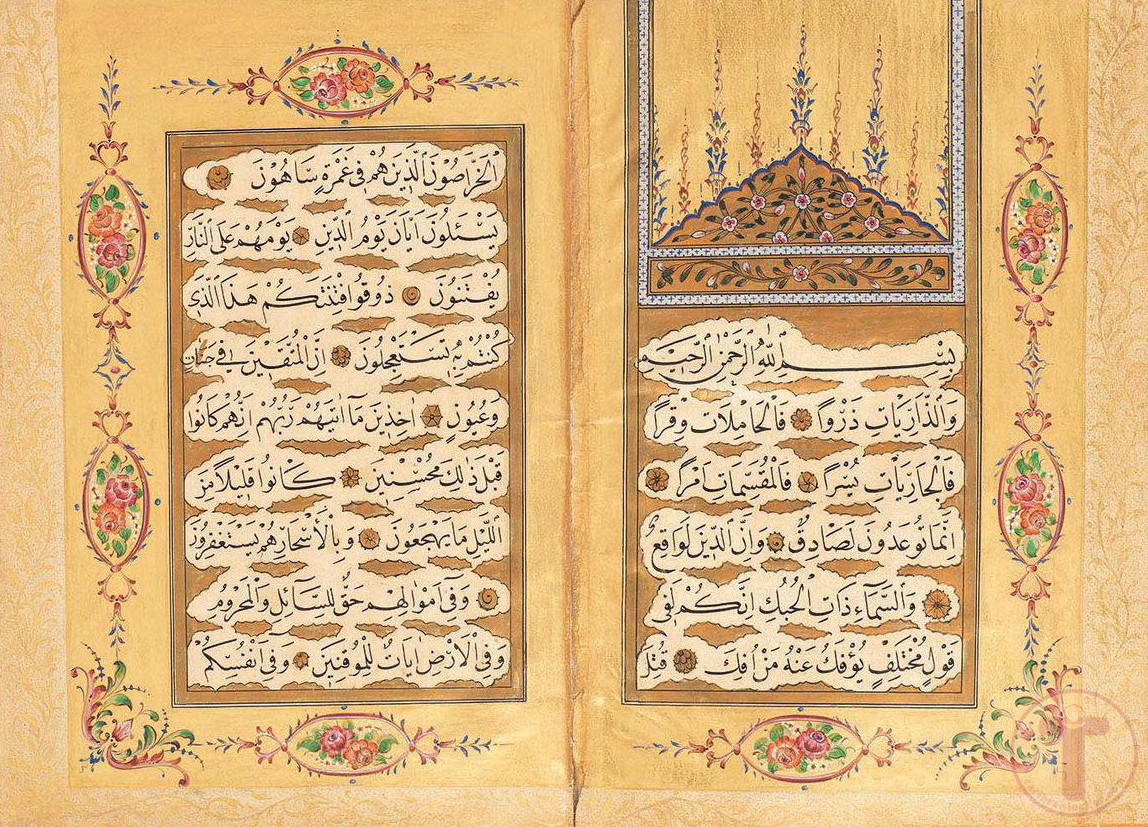 بِسْمِ اللهِ الرَّحْمٰنِ الرَّحِيمِ
وَالذَّارِيَاتِ ذَرْوًا فَالْحَامِلَاتِ وِقْرًا
فَالْجَارِيَاتِ يُسْرًا فَالْمُقَسِّمَاتِ اَمْرًا
اِنَّمَا تُوعَدُونَ لَصَادِقٌ وَاِنَّ الدِّينَ لَوَاقِعٌ
وَالسَّمَاءِ ذَاتِ الْحُبُكِ اِنَّكُمْ لَفِي
قَوْلٍ مُخْتَلِفٍ يُؤْفَكُ عَنْهُ مَنْ اُفِكَ قُتِلَ
الْخَرَّاصُونَ اَلَّذِينَ هُمْ فِي غَمْرَةٍ سَاهُونَ
يَسْـَٔلُونَ اَيَّانَ يَوْمُ الدِّينِ يَوْمَ هُمْ عَلَى النَّارِ
يُفْتَنُونَ ذُوقُوا فِتْنَتَكُمْ هٰذَا الَّذِي
كُنْتُمْ بِهِ تَسْتَعْجِلُونَ اِنَّ الْمُتَّقِينَ فِي جَنَّاتٍ
وَعُيُونٍ اٰخِذِينَ مَا اٰتٰيهُمْ رَبُّهُمْ اِنَّهُمْ كَانُوا
قَبْلَ ذٰلِكَ مُحْسِنِينَ كَانُوا قَلِيلًا مِنَ
الَّيْلِ مَا يَهْجَعُونَ وَبِالْاَسْحَارِ هُمْ يَسْتَغْفِرُونَ
وَفِي اَمْوَالِهِمْ حَقٌّ لِلسَّائِلِ وَالْمَحْرُومِ
وَفِي الْاَرْضِ اٰيَاتٌ لِلْمُوقِنِينَ وَفِي اَنْفُسِكُمْ